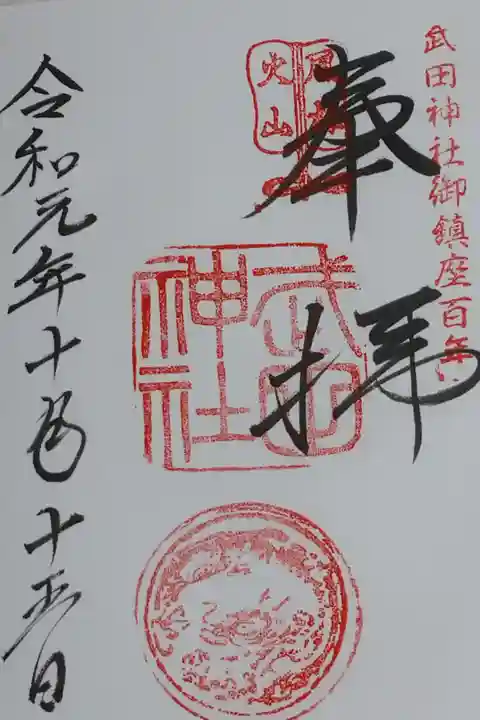 武田神社御鎮座百年
奉拝
火山
武田神社
令和元年十月十五日